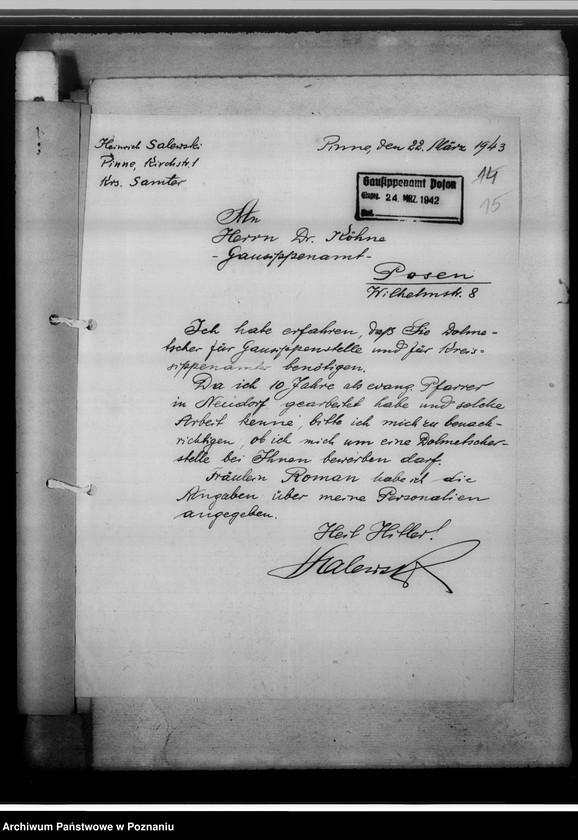 Heinrich Salewski
Pinne, Kirchstr. 1
Krs. Samter
Pinne, den 22. März 1943
14
15
Gausippenamt Posen
Eingeg. 24. MRZ. 1942
An
Herrn Dr. Köhne
- Gausippenamt -
Posen
Wilhelmstr. 8
Ich habe erfahren, daß Sie Dolme-
tscher für Gausippenstelle und für Kreis-
sippenämter benötigen.
Da ich 10 Jahre als evang. Pfarrer
in Neudorf gearbeitet habe und solche
Arbeit kenne, bitte ich mich zu benach-
richtigen, ob ich mich um eine Dolmetscher-
stelle bei Ihnen bewerben darf.
Fräulein Roman habe ich die
Angaben über meine Personalien
angegeben.
Heil Hitler!
HSalewski
Archiwum Państwowe w Poznaniu